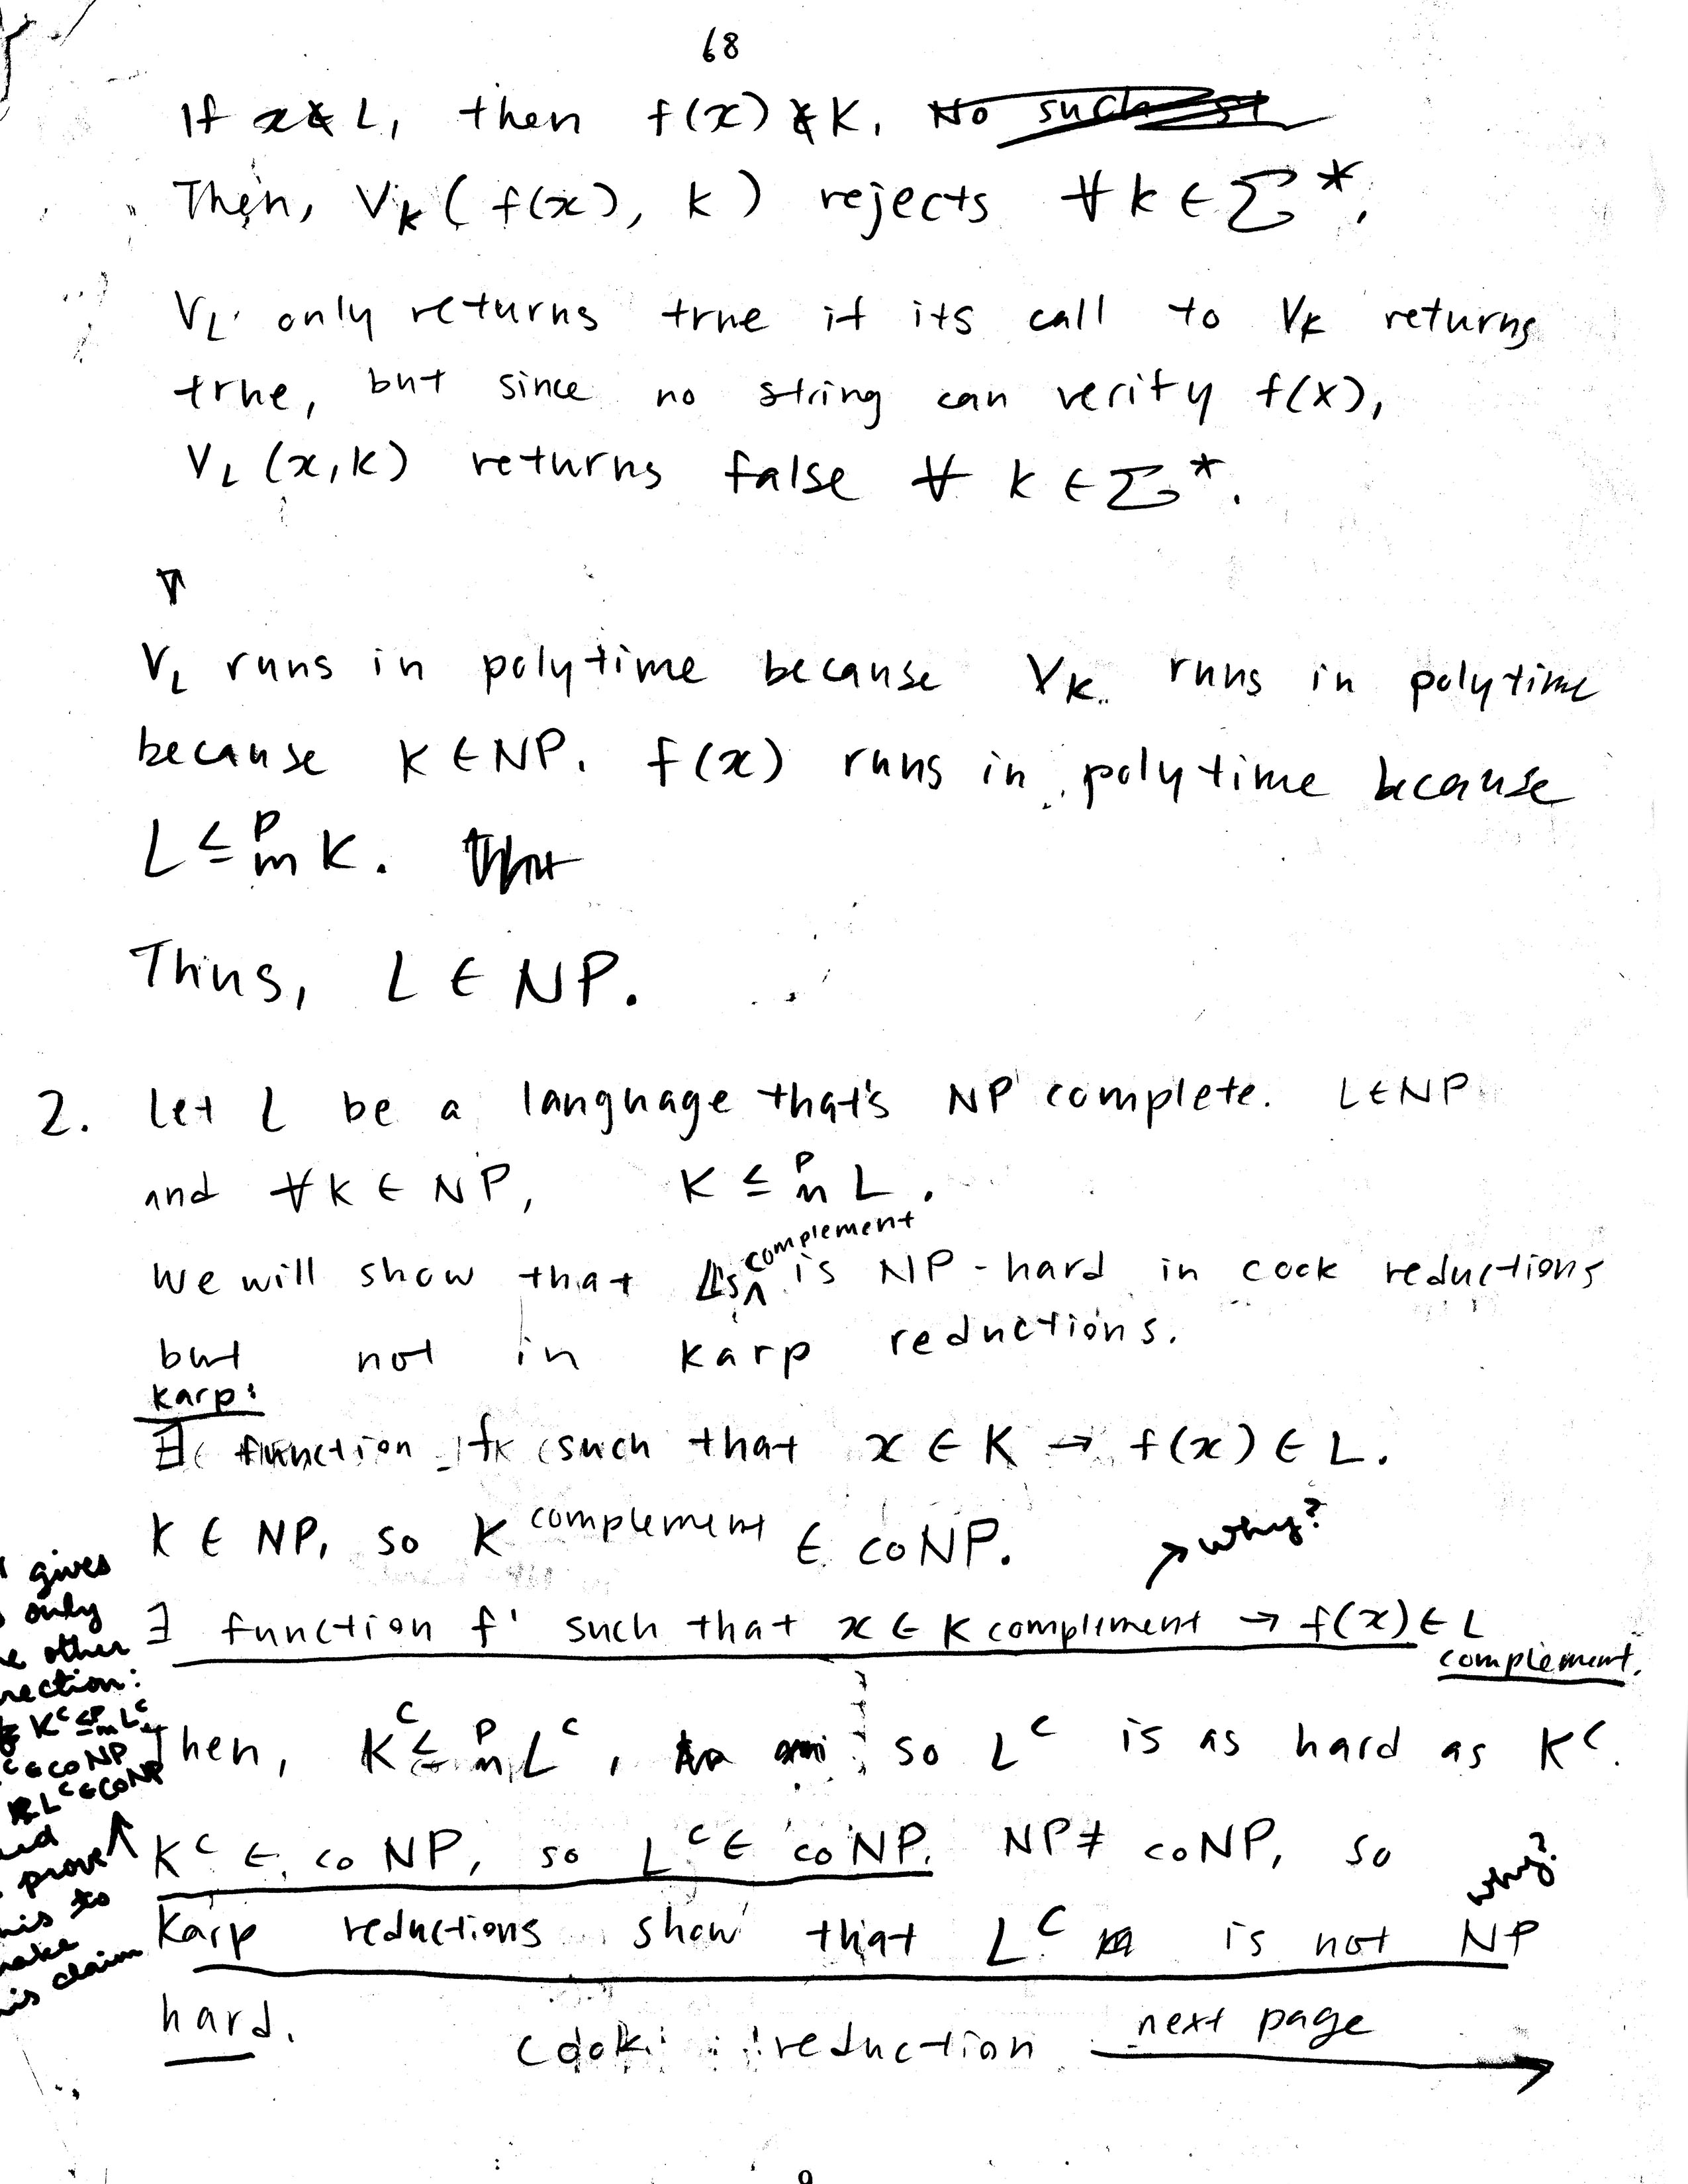 68
If x ∉ L, then f(x) ∉ K. No such st
Then, V_K ( f(x), k ) rejects ∀ k ∈ Σ*.
V_L only returns true if its call to V_K returns
true, but since no string can verify f(x),
V_L (x, k) returns false ∀ k ∈ Σ*.
V_L runs in polytime because V_K runs in polytime
because K ∈ NP. f(x) runs in polytime because
L ≤ᵖₘ K.
Thus, L ∈ NP.
2. Let L be a language that's NP complete. L ∈ NP
and ∀ K ∈ NP, K ≤ᵖₘ L.
We will show that L's complement is NP-hard in cook reductions
but not in karp reductions.
karp:
∃ function f_K such that x ∈ K → f(x) ∈ L.
K ∈ NP, so K complement ∈ coNP.
why?
∃ function f' such that x ∈ K complement → f(x) ∈ L
complement.
Then, Kᶜ ≤ᵖₘ Lᶜ, so Lᶜ is as hard as Kᶜ.
Kᶜ ∈ coNP, so Lᶜ ∈ coNP. NP ≠ coNP, so
why?
Karp reductions show that Lᶜ is not NP
hard. cook reduction next page
gives
only
other
Kᶜ ≤ᵖₘ Lᶜ
∈ coNP
Lᶜ ∈ coNP
prove
to
claim
9